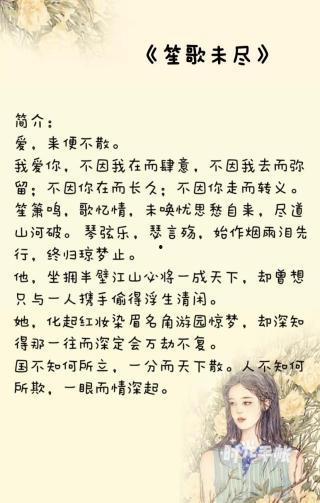 《笙歌未尽》
简介：
爱，来便不散。
我爱你，不因我在而肆意，不因我去而弥
留；不因你在而长久；不因你走而转义。
笙箫鸣，歌忆情，未唤忧思愁自来，尽道
山河破。琴弦乐，瑟言殇，始作烟雨泪先
行，终归琼梦止。
他，坐拥半壁江山必将一成天下，却曾想
只与一人携手偷得浮生清闲。
她，化起红妆染眉名角游园惊梦，却深知
得那一往而深定会万劫不复。
国不知何所立，一分而天下散。人不知何
所欺，一眼而情深起。
时光手帐